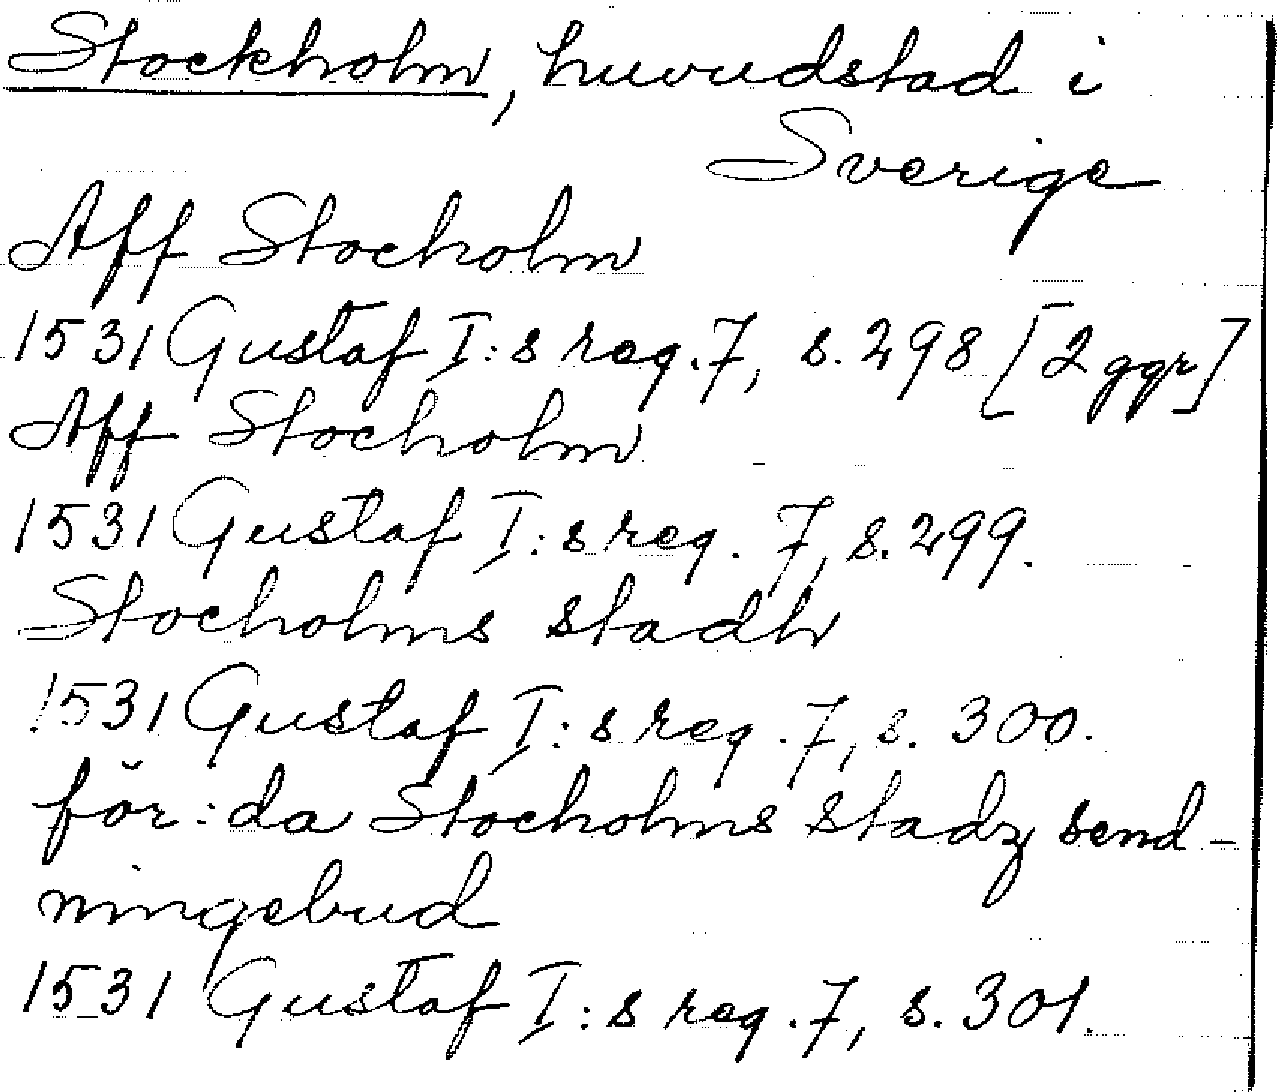 Stockholm, huvudstad i
Sverige
Aff Stocholm
1531 Gustaf I:s reg. 7, s. 298 [2 ggr]
Aff Stocholm
1531 Gustaf I:s reg. 7, s. 299.
Stocholms stadh
1531 Gustaf I:s reg. 7, s. 300.
för: da Stocholms stadz send-
ningebud
1531 Gustaf I:s reg. 7, s. 301.